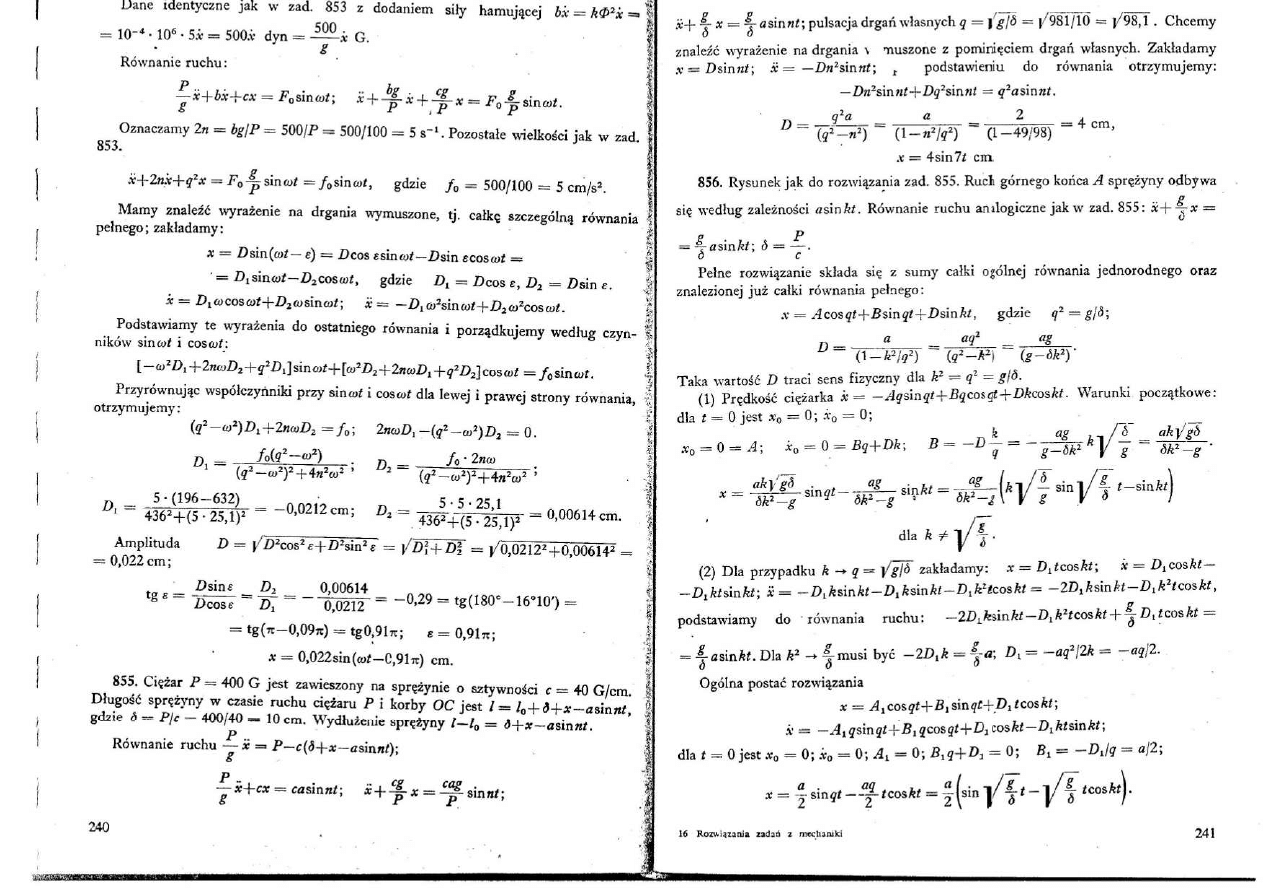 Dane identyczne jak w zad. 853 z dodaniem siły hamującej bẋ = kΦ²ẋ =
= 10⁻⁴ · 10⁶ · 5ẋ = 500ẋ dyn = 500/g ẋ G.
Równanie ruchu:
P/g ẍ+bẋ+cx = F₀sinωt; ẍ + bg/P ẋ + cg/P x = F₀ g/P sinωt.
Oznaczamy 2n = bg/P = 500/P = 500/100 = 5 s⁻¹. Pozostałe wielkości jak w zad.
853.
ẍ+2nẋ+q²x = F₀ g/P sinωt = f₀sinωt, gdzie f₀ = 500/100 = 5 cm/s².
Mamy znaleźć wyrażenie na drgania wymuszone, tj. całkę szczególną równania
pełnego; zakładamy:
x = Dsin(ωt−ε) = Dcos εsinωt−Dsin εcosωt =
= D₁sinωt−D₂cosωt, gdzie D₁ = Dcos ε, D₂ = Dsin ε.
ẋ = D₁ωcosωt+D₂ωsinωt; ẍ = −D₁ω²sinωt+D₂ω²cosωt.
Podstawiamy te wyrażenia do ostatniego równania i porządkujemy według czyn-
ników sinωt i cosωt:
[−ω²D₁+2nωD₂+q²D₁]sinωt+[ω²D₂+2nωD₁+q²D₂]cosωt = f₀sinωt.
Przyrównując współczynniki przy sinωt i cosωt dla lewej i prawej strony równania,
otrzymujemy:
(q²−ω²)D₁+2nωD₂ = f₀; 2nωD₁−(q²−ω²)D₂ = 0.
D₁ = f₀(q²−ω²)/((q²−ω²)²+4n²ω²); D₂ = f₀ · 2nω/((q²−ω²)²+4n²ω²);
D₁ = 5·(196−632)/(436²+(5·25,1)²) = −0,0212 cm; D₂ = 5·5·25,1/(436²+(5·25,1)²) = 0,00614 cm.
Amplituda D = √(D²cos²ε+D²sin²ε) = √(D₁²+D₂²) = √(0,0212²+0,00614²) =
= 0,022 cm;
tg ε = Dsinε/Dcosε = D₂/D₁ = − 0,00614/0,0212 = −0,29 = tg(180°−16°10′) =
= tg(π−0,09π) = tg0,91π; ε = 0,91π;
x = 0,022sin(ωt−0,91π) cm.
855. Ciężar P = 400 G jest zawieszony na sprężynie o sztywności c = 40 G/cm.
Długość sprężyny w czasie ruchu ciężaru P i korby OC jest l = l₀+δ+x−asinnt,
gdzie δ = P/c − 400/40 = 10 cm. Wydłużenie sprężyny l−l₀ = δ+x−asinnt.
Równanie ruchu P/g ẍ = P−c(δ+x−asinnt);
P/g ẍ+cx = casinnt; ẍ + cg/P x = cag/P sinnt;
240
ẍ+ g/δ x = g/δ asinnt; pulsacja drgań własnych q = √(g/δ) = √(981/10) = √98,1. Chcemy
znaleźć wyrażenie na drgania muszone z pominięciem drgań własnych. Zakładamy
x = Dsinnt; ẍ = −Dn²sinnt; podstawieniu do równania otrzymujemy:
−Dn²sinnt+Dq²sinnt = q²asinnt.
D = q²a/(q²−n²) = a/(1−n²/q²) = 2/(1−49/98) = 4 cm,
x = 4sin7t cm
856. Rysunek jak do rozwiązania zad. 855. Ruch górnego końca A sprężyny odbywa
się według zależności asinkt. Równanie ruchu analogiczne jak w zad. 855: ẍ+ g/δ x =
= g/δ asinkt; δ = P/c.
Pełne rozwiązanie składa się z sumy całki ogólnej równania jednorodnego oraz
znalezionej już całki równania pełnego:
x = Acosqt+Bsinqt+Dsinkt, gdzie q² = g/δ;
D = a/(1−k²/q²) = aq²/(q²−k²) = ag/(g−δk²).
Taka wartość D traci sens fizyczny dla k² = q² = g/δ.
(1) Prędkość ciężarka ẋ = −Aqsinqt+Bqcosqt+Dkcoskt. Warunki początkowe:
dla t = 0 jest x₀ = 0; ẋ₀ = 0;
x₀ = 0 = A; ẋ₀ = 0 = Bq+Dk; B = −D k/q = − ag/(g−δk²) k√(δ/g) = ak√(gδ)/(δk²−g).
x = ak√(gδ)/(δk²−g) sinqt − ag/(δk²−g) sinkt = ag/(δk²−g) (k√(δ/g) sin√(g/δ) t−sinkt)
dla k ≠ √(g/δ).
(2) Dla przypadku k → q = √(g/δ) zakładamy: x = D₁tcoskt; ẋ = D₁coskt−
−D₁ktsinkt; ẍ = −D₁ksinkt−D₁ksinkt−D₁k²tcoskt = −2D₁ksinkt−D₁k²tcoskt,
podstawiamy do równania ruchu: −2D₁ksinkt−D₁k²tcoskt+ g/δ D₁tcoskt =
= g/δ asinkt. Dla k² → g/δ musi być −2D₁k = g/δ a; D₁ = −aq²/2k = −aq/2.
Ogólna postać rozwiązania
x = A₁cosqt+B₁sinqt+D₁tcoskt;
ẋ = −A₁qsinqt+B₁qcosqt+D₁coskt−D₁ktsinkt;
dla t = 0 jest x₀ = 0; ẋ₀ = 0; A₁ = 0; B₁q+D₁ = 0; B₁ = −D₁/q = a/2;
x = a/2 sinqt − aq/2 tcoskt = a/2 (sin√(g/δ) t−√(g/δ) tcoskt).
16 Rozwiązania zadań z mechaniki
241